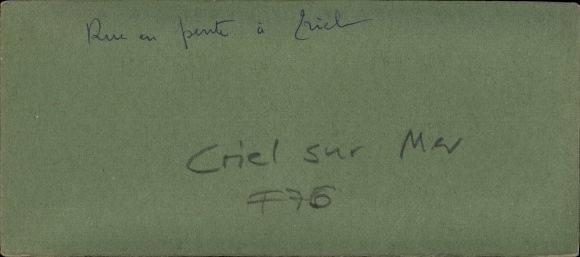 Rue en pente à Criel
Criel sur Mer
F76